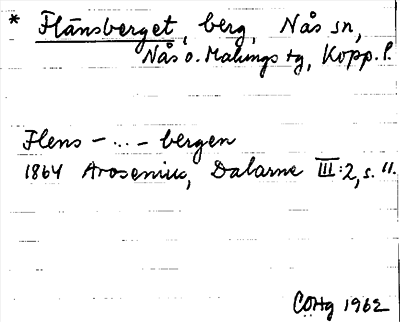 * Flänsberget, berg, Nås sn,
Nås o. Malungs tg, Kopp. l.
Flens - ... - bergen
1864 Arosenius, Dalarne III:2, s. 11.
COHg 1962